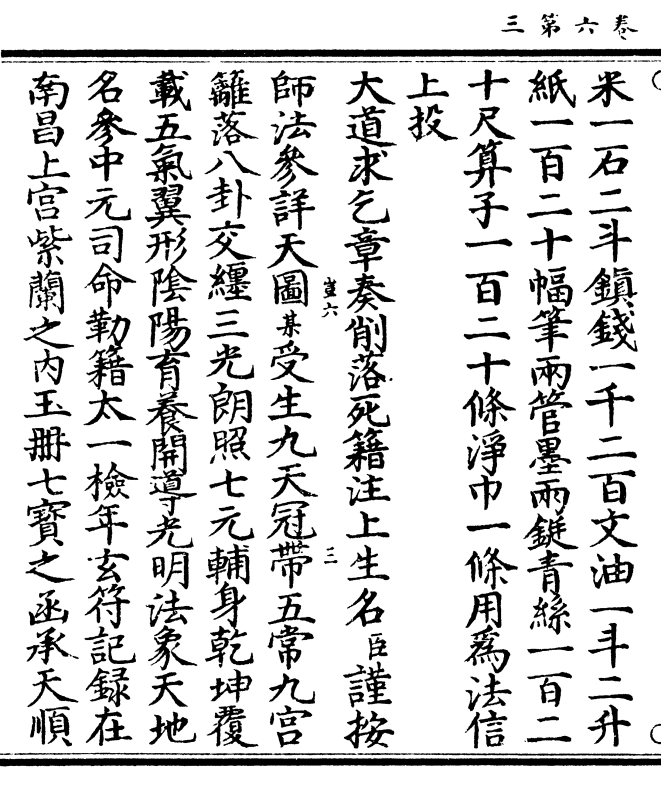 卷六第三
米一石二斗鎮錢一千二百文油一斗二升
紙一百二十幅筆兩管墨兩鋌青絲一百二
十尺算子一百二十條淨巾一條用爲法信
上投
大道求乞章奏削落死籍注上生名臣謹按
壹六
三
師法參詳天圖某受生九天冠帶五常九宮
籬落八卦交纏三光朗照七元輔身乾坤覆
載五氣翼形陰陽育養開導光明法象天地
名參中元司命勒籍太一檢年玄符記録在
南昌上宮紫蘭之内玉冊七寶之函承天順